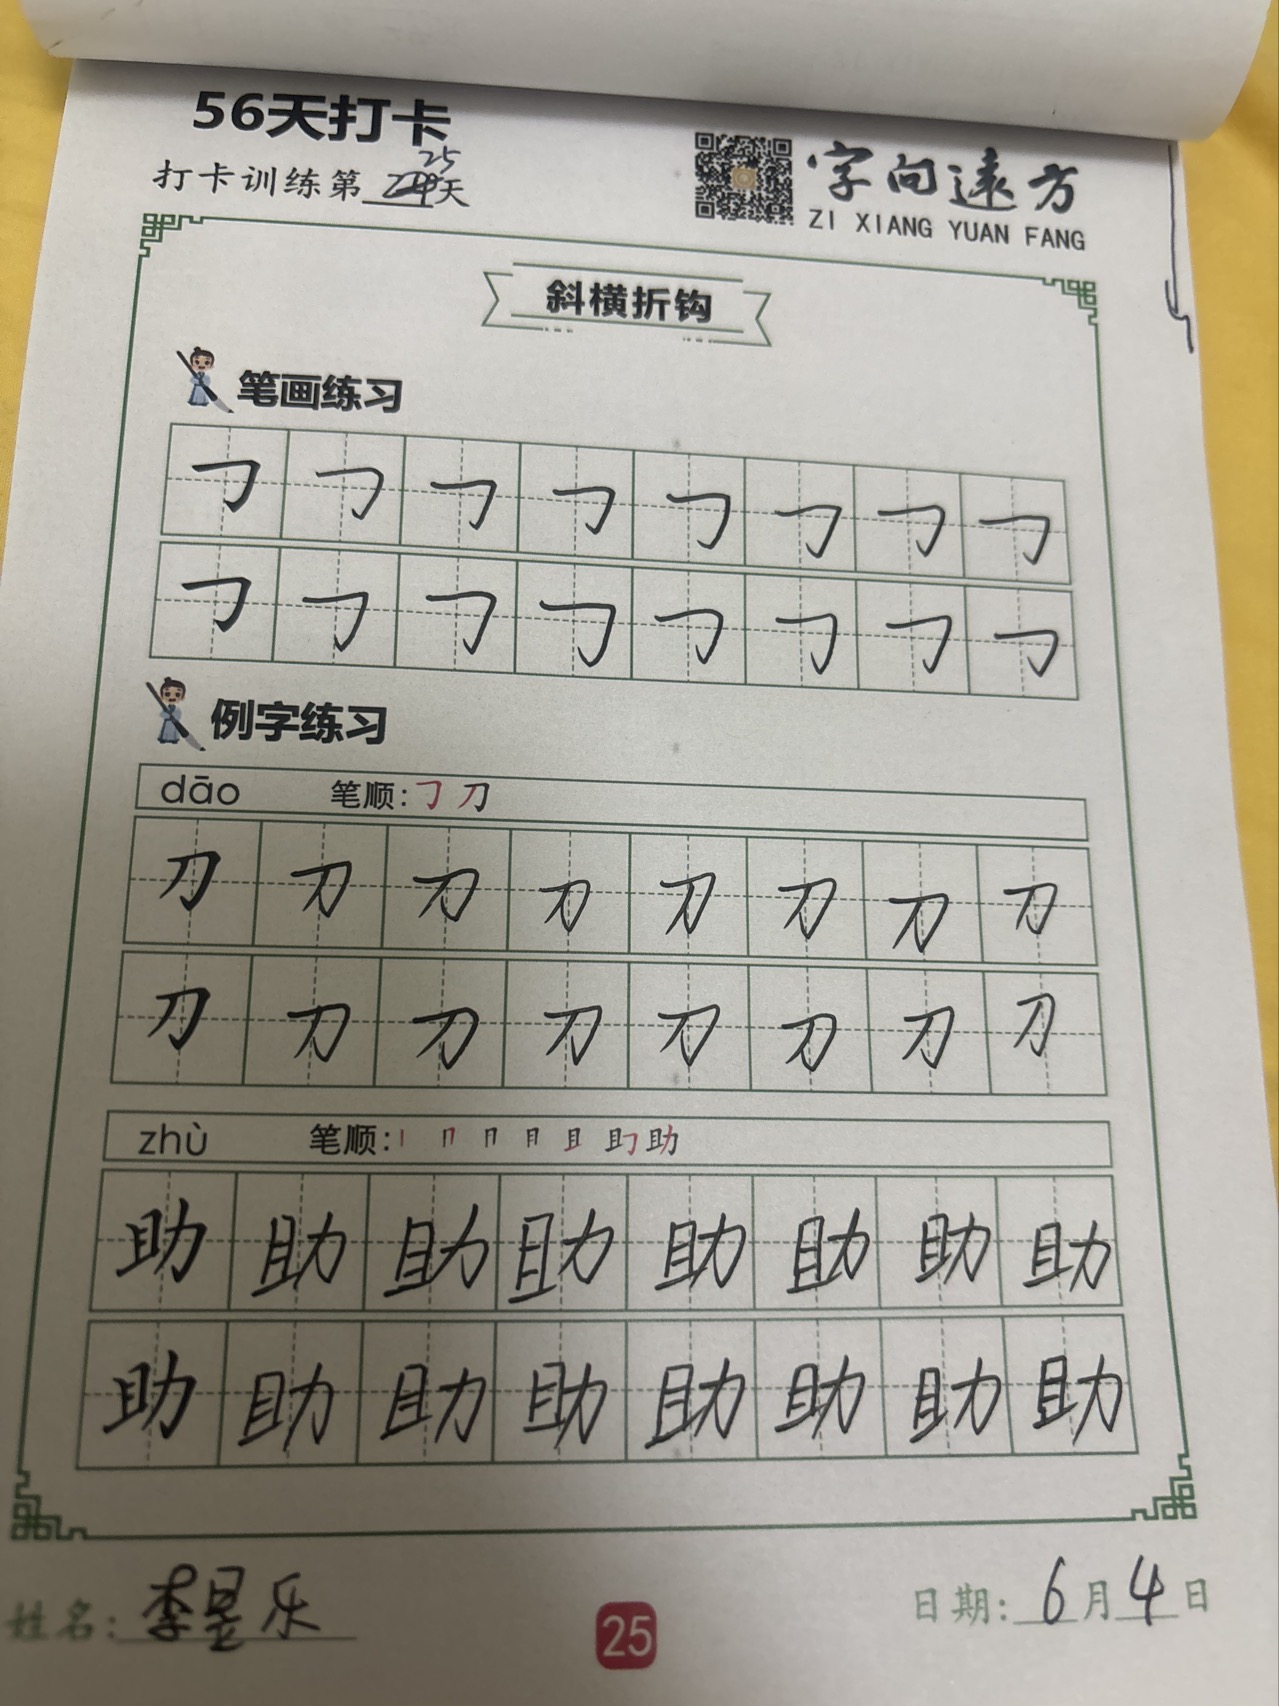 56天打卡
打卡训练第25天
字向遠方
ZI XIANG YUAN FANG
斜横折钩
笔画练习
㇆㇆㇆㇆㇆㇆㇆㇆
㇆㇆㇆㇆㇆㇆㇆㇆
例字练习
dāo 笔顺:㇆刀
刀刀刀刀刀刀刀刀
刀刀刀刀刀刀刀刀
zhù 笔顺:
助助助助助助助助
助助助助助助助助
姓名:李昱乐
25
日期:6月4日